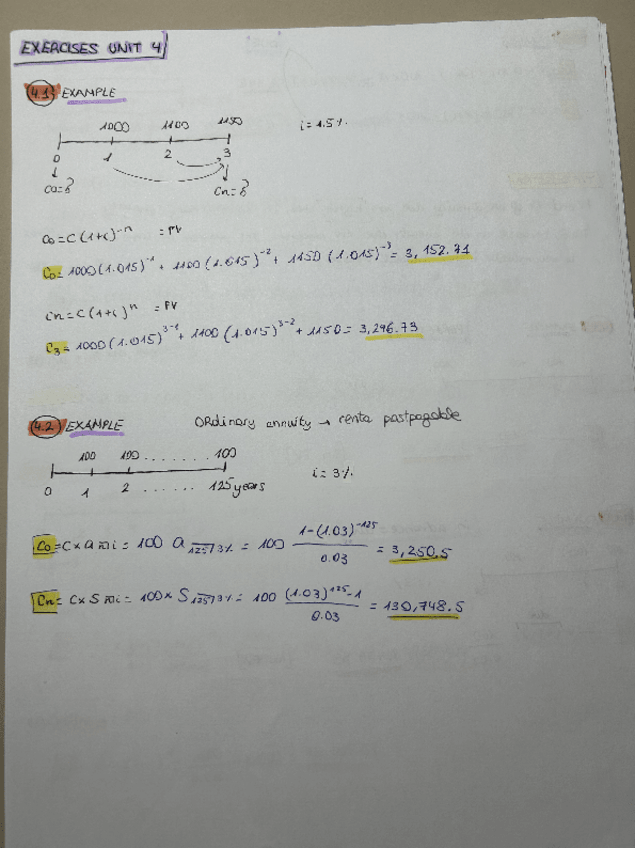 EXERCISES UNIT 4
4.1 EXAMPLE
1000 1100 1150 i=1.5%
0 1 2 3
Co=? Cn=?
Co=C(1+i)^-n =PV
Co= 1000(1.015)^-1 + 1100(1.015)^-2 + 1150(1.015)^-3 = 3,152.71
Cn=C(1+i)^n =PV
C3= 1000(1.015)^3-1 + 1100(1.015)^3-2 + 1150= 3,296.73
4.2 EXAMPLE ORdinary annuity → renta postpagable
100 100 ....... 100
0 1 2 ...... 125 years i=3%
Co=C×a n⌉i = 100 a 125⌉3% = 100 (1-(1.03)^-125)/0.03 = 3,250.5
Cn= C×S n⌉i = 100× S 125⌉3% = 100 ((1.03)^125-1)/0.03 = 130,748.5